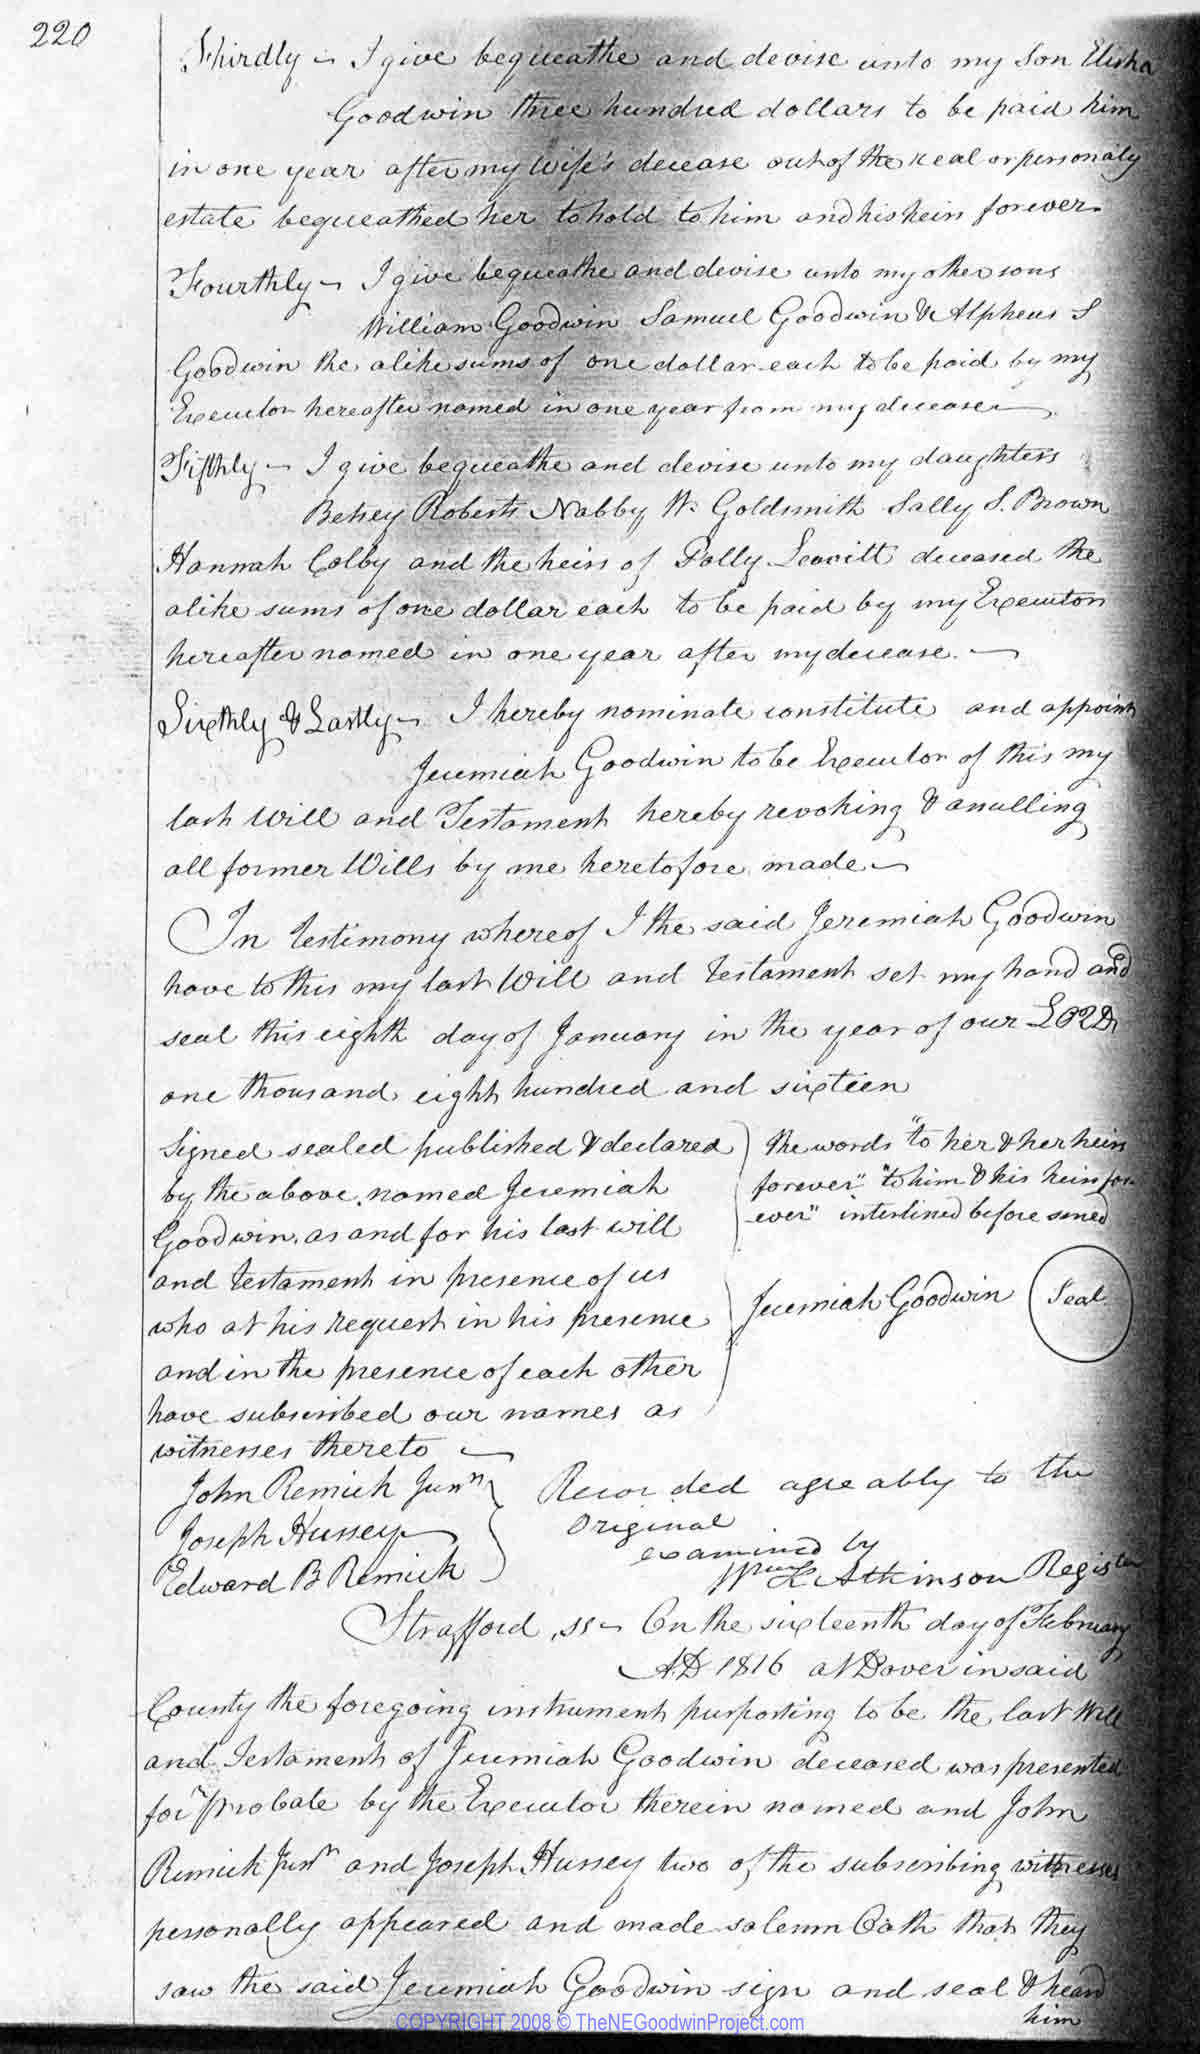 220
Thirdly - I give bequeathe and devise unto my Son Elisha
Goodwin three hundred dollars to be paid him
in one year after my wife's decease out of the real or personaly
estate bequeathed her to hold to him and his heirs forever.
Fourthly - I give bequeathe and devise unto my other sons
William Goodwin Samuel Goodwin & Alpheus S
Goodwin the alike sums of one dollar each to be paid by my
Executor hereafter named in one year from my decease
Fifthly - I give bequeathe and devise unto my daughters
Betsey Roberts Nabby W. Goldsmith Sally S. Brown
Hannah Colby and the heirs of Polly Leavitt deceased the
alike sums of one dollar each to be paid by my Executor
hereafter named in one year after my decease. -
Sixthly & Lastly - I hereby nominate constitute and appoint
Jeremiah Goodwin to be Executor of this my
last Will and Testament hereby revoking & anulling
all former Wills by me heretofore made -
In testimony whereof I the said Jeremiah Goodwin
have to this my last Will and testament set my hand and
seal this eighth day of January in the year of our LORD
one thousand eight hundred and sixteen
Signed sealed published & declared
by the above named Jeremiah
Goodwin as and for his last will
and testament in presence of us
who at his request in his presence
and in the presence of each other
have subscribed our names as
witnesses thereto -
the words "to her & her heirs
forever" "to him & his heirs for
ever" interlined before sined
Jeremiah Goodwin Seal
John Remick Junr
Joseph Hussey
Edward B Remick
Recorded agreably to the
Original
examined by
Wm K Atkinson Register
Strafford, ss - On the sixteenth day of February
A.D 1816 at Dover in said
County the foregoing instrument purporting to be the last Will
and Testament of Jeremiah Goodwin deceased was presented
for Probate by the Executor therein named and John
Remick Junr and Joseph Hussey two of the subscribing witnesses
personally appeared and made solemn Oath that they
saw the said Jeremiah Goodwin sign and seal & heard
him
COPYRIGHT 2008 © TheNEGoodwinProject.com